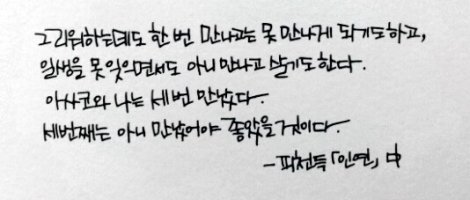 그리워하는데도 한 번 만나고는 못 만나게 되기도 하고,
일생을 못 잊으면서도 아니 만나고 살기도 한다.
아사코와 나는 세 번 만났다.
세번째는 아니 만났어야 좋았을 것이다.
- 피천득 「인연」 中